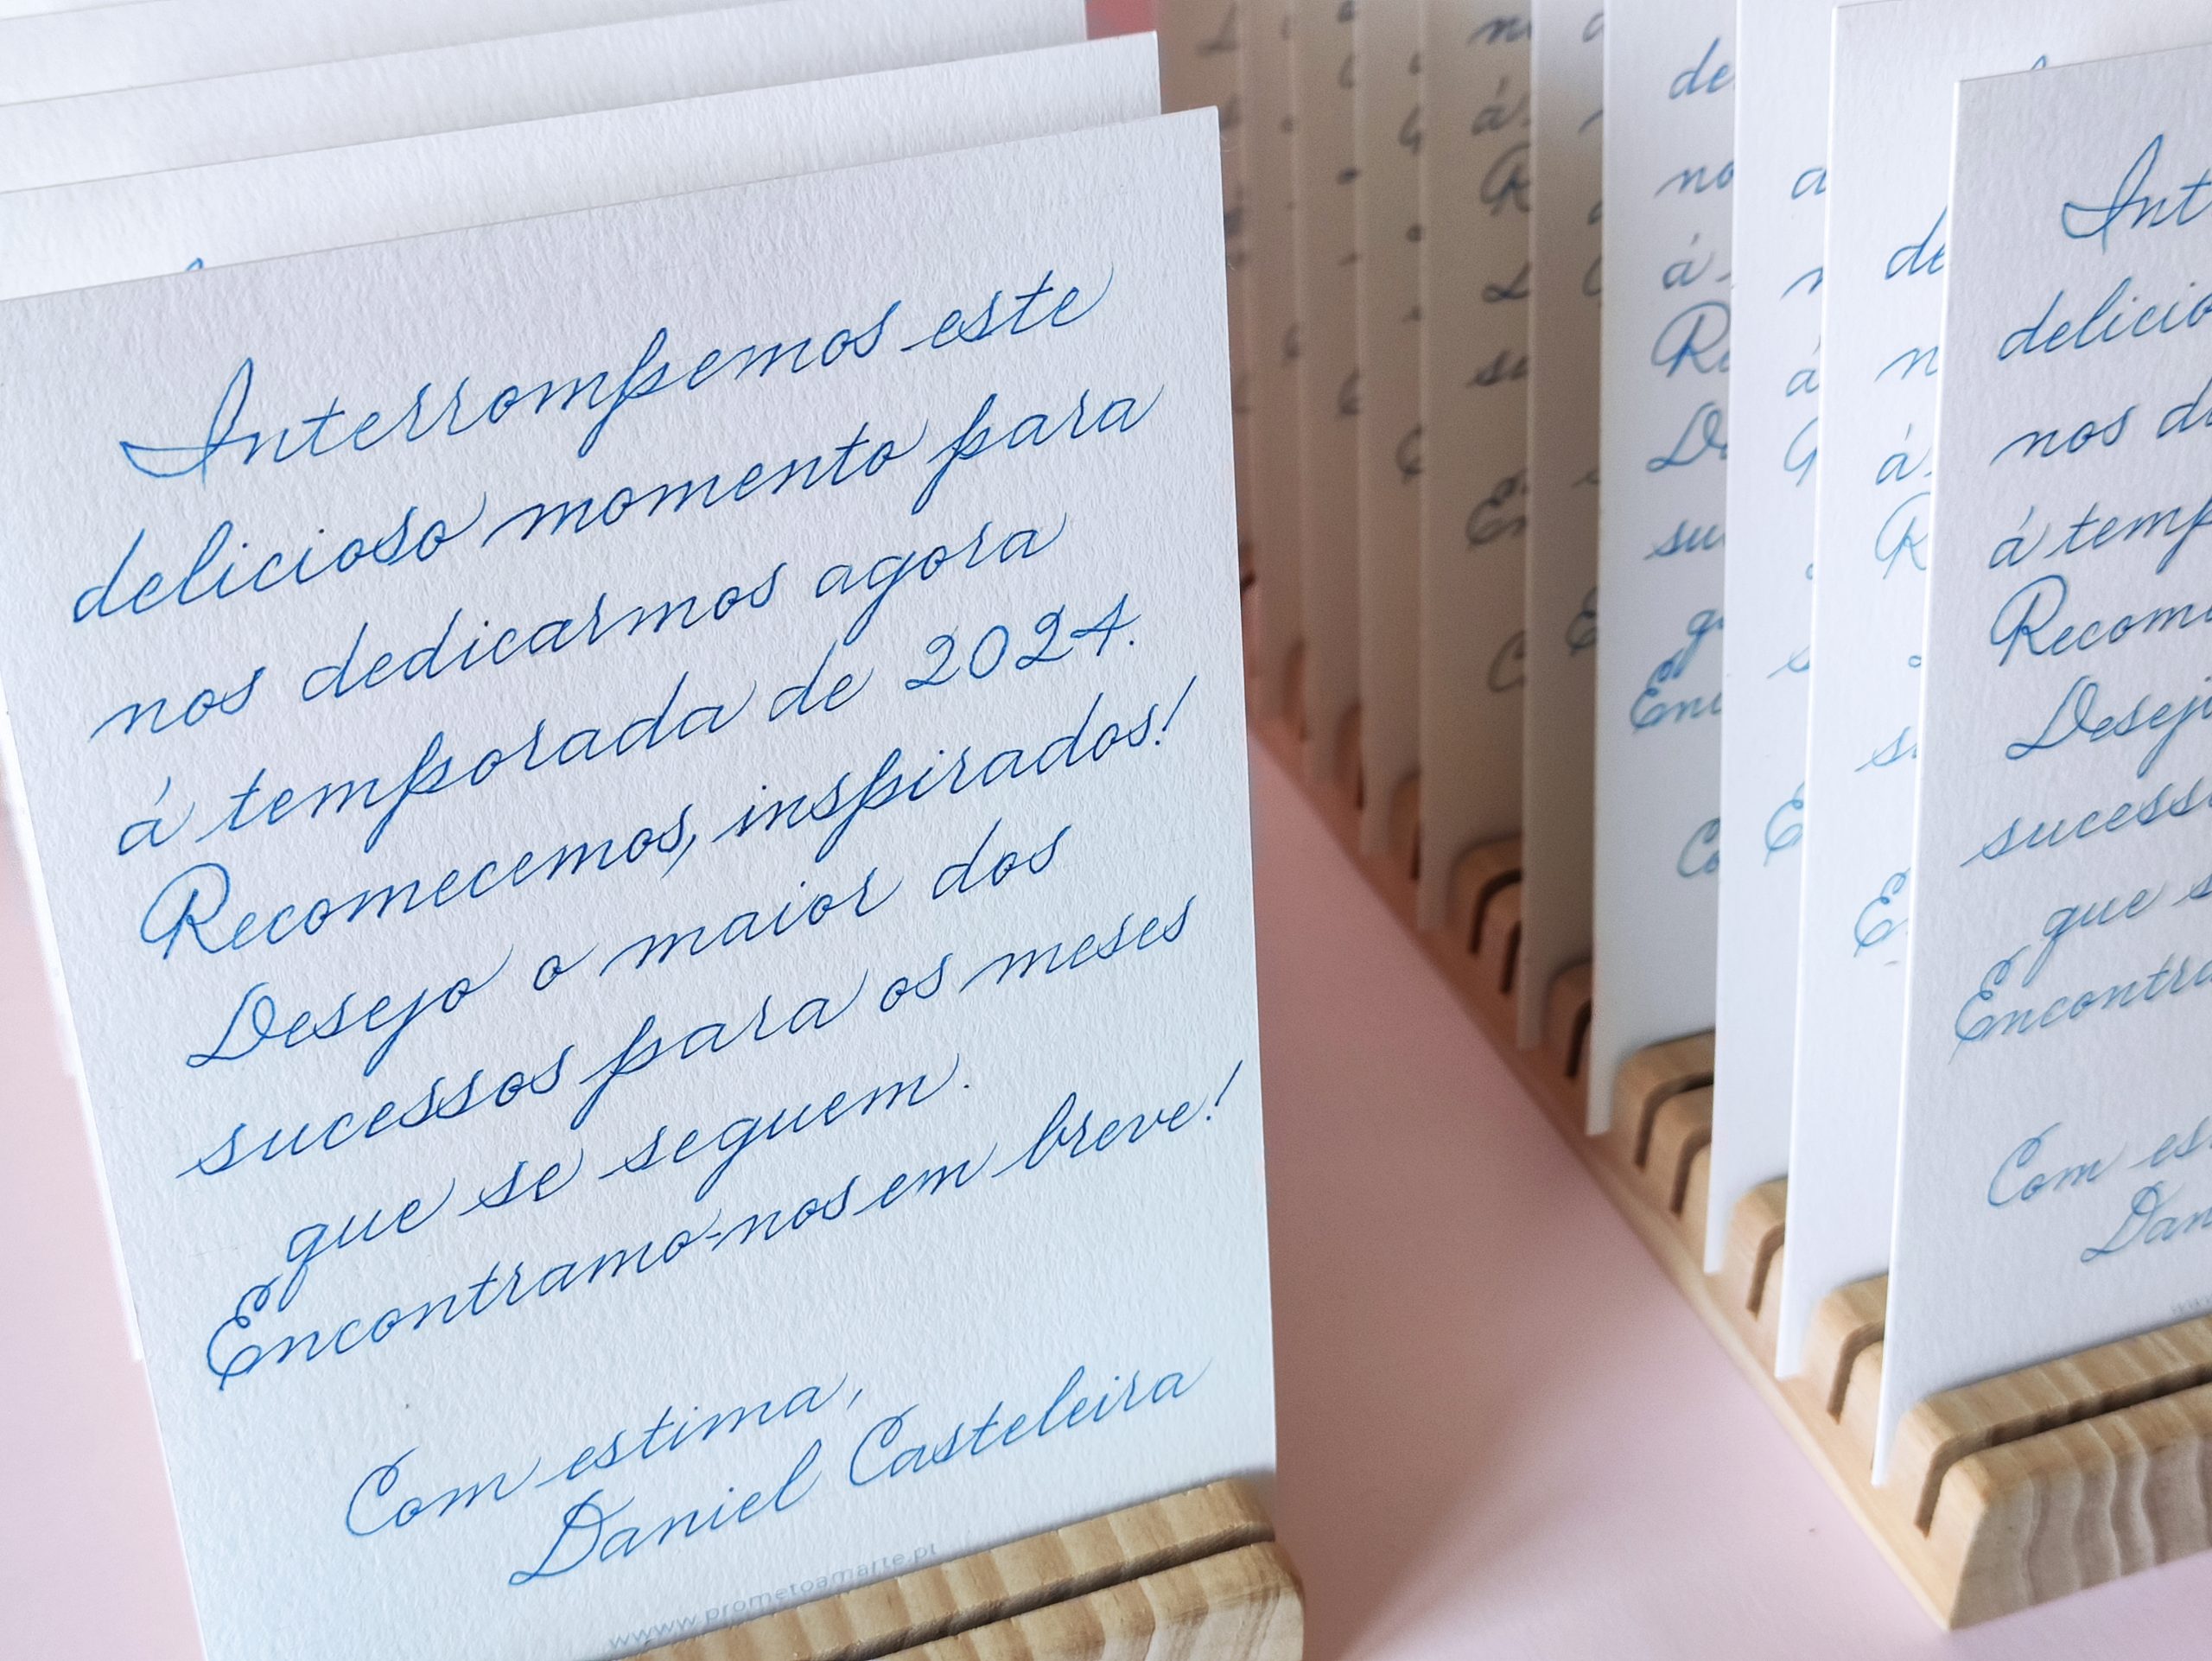 Interrompemos este
delicioso momento para
nos dedicarmos agora
á temporada de 2024.
Recomecemos, inspirados!
Desejo o maior dos
sucessos para os meses
que se seguem.
Encontramo-nos em breve!
Com estima,
Daniel Casteleira
www.prometoamarte.pt
de
no
á
Re
De
su
qu
Enc
Co
de
n
á
R
s
E
Int
delicio
nos de
á temp
Recom
Desej
sucess
que s
Encontra
Com es
Dan